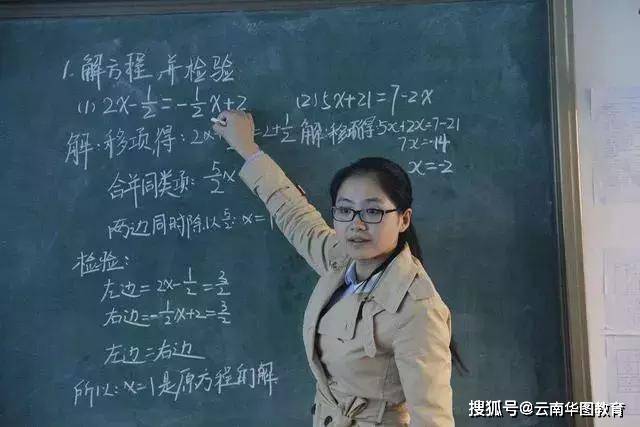 1.解方程,并检验
(1) 2x-1/2=-1/2x+2
解:移项得: 2x =2+1/2
合并同类项: 5/2x
两边同时除以5/2: x=1
检验:
左边=2x-1/2=3/2
右边=-1/2x+2=3/2
左边=右边
所以:x=1是原方程的解
(2) 5x+21=7-2x
解:移项得5x+2x=7-21
7x=-14
x=-2
搜狐号@云南华图教育